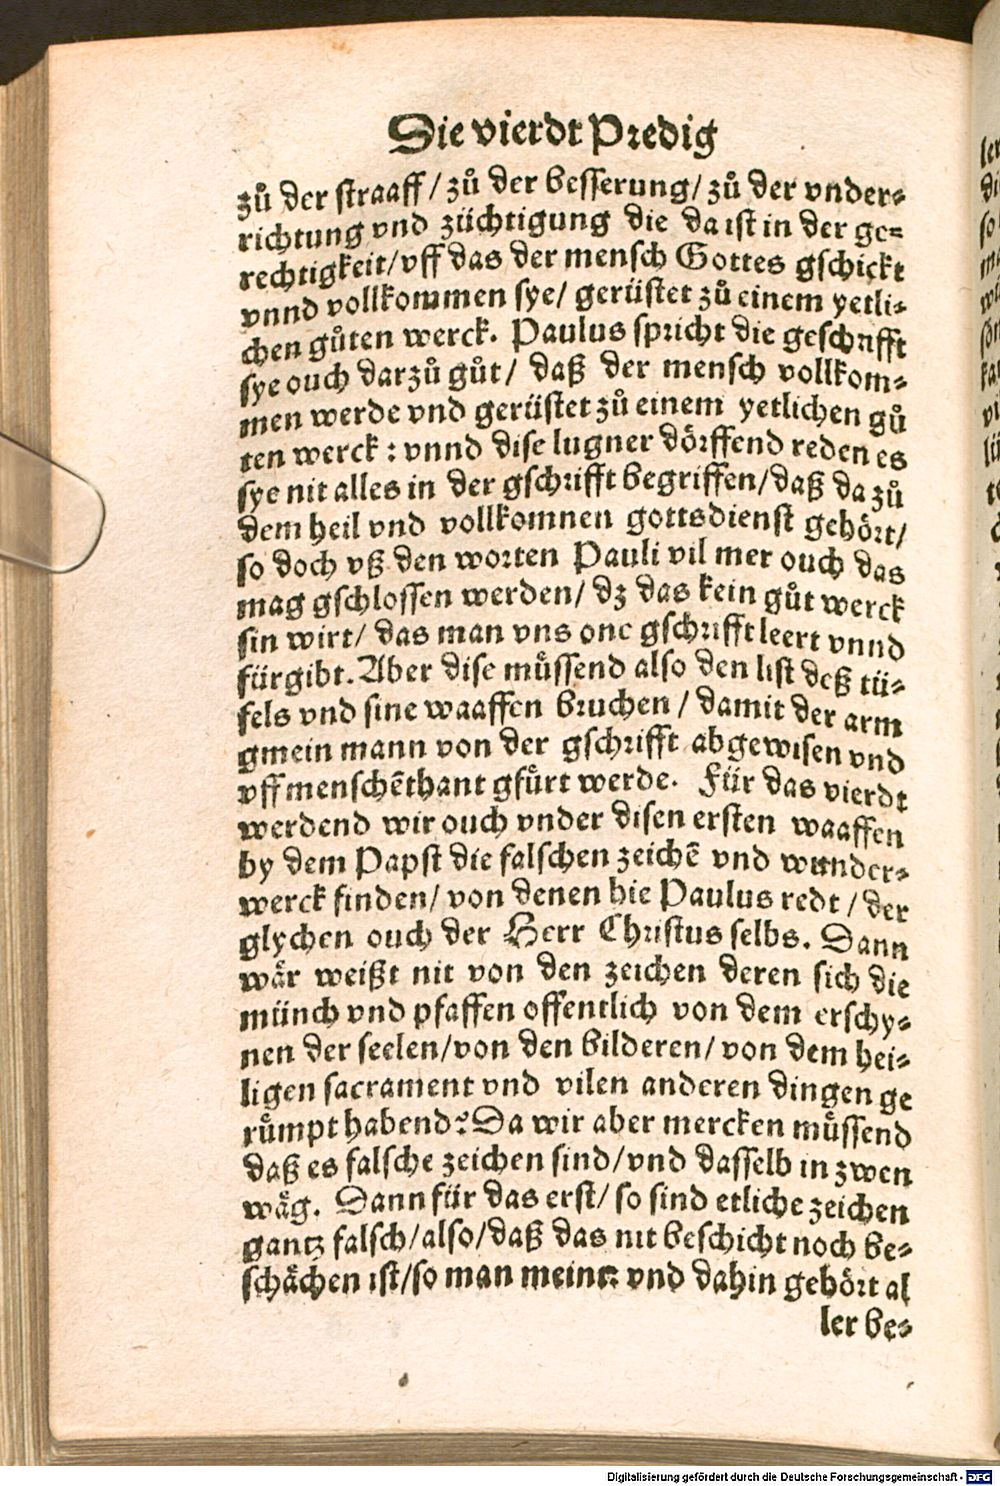 Die vierdt Predig
zů der straaff / zů der besserung / zů der vnder-
richtung vnd züchtigung die da ist in der ge-
rechtigkeit / vff das der mensch Gottes gschickt
vnnd vollkommen sye / gerüstet zů einem yetli-
chen gůten werck. Paulus spricht die geschrifft
sye ouch darzů gůt / daß der mensch vollkom-
men werde vnd gerüstet zů einem yetlichen gů
ten werck : vnnd dise lugner dörffend reden es
sye nit alles in der gschrifft begriffen / daß da zů
dem heil vnd vollkomnen gottsdienst gehört /
so doch vß den worten Pauli vil mer ouch das
mag gschlossen werden / dz das kein gůt werck
sin wirt / das man vns one gschrifft leert vnnd
fürgibt. Aber dise müssend also den list deß tü-
fels vnd sine waaffen bruchen / damit der arm
gmein mann von der gschrifft abgewisen vnd
vff menschẽthant gfůrt werde. Für das vierdt
werdend wir ouch vnder disen ersten waaffen
by dem Papst die falschen zeichẽ vnd wunder-
werck finden / von denen hie Paulus redt / der
glychen ouch der Herr Christus selbs. Dann
wär weißt nit von den zeichen deren sich die
münch vnd pfaffen offentlich von dem erschy-
nen der seelen / von den bilderen / von dem hei-
ligen sacrament vnd vilen anderen dingen ge
růmpt habend? Da wir aber mercken müssend
daß es falsche zeichen sind / vnd dasselb in zwen
wäg. Dann für das erst / so sind etliche zeichen
gantz falsch / also / daß das nit beschicht noch be-
schächen ist / so man meint vnd dahin gehört al
ler be-
Digitalisierung gefördert durch die Deutsche Forschungsgemeinschaft - DFG